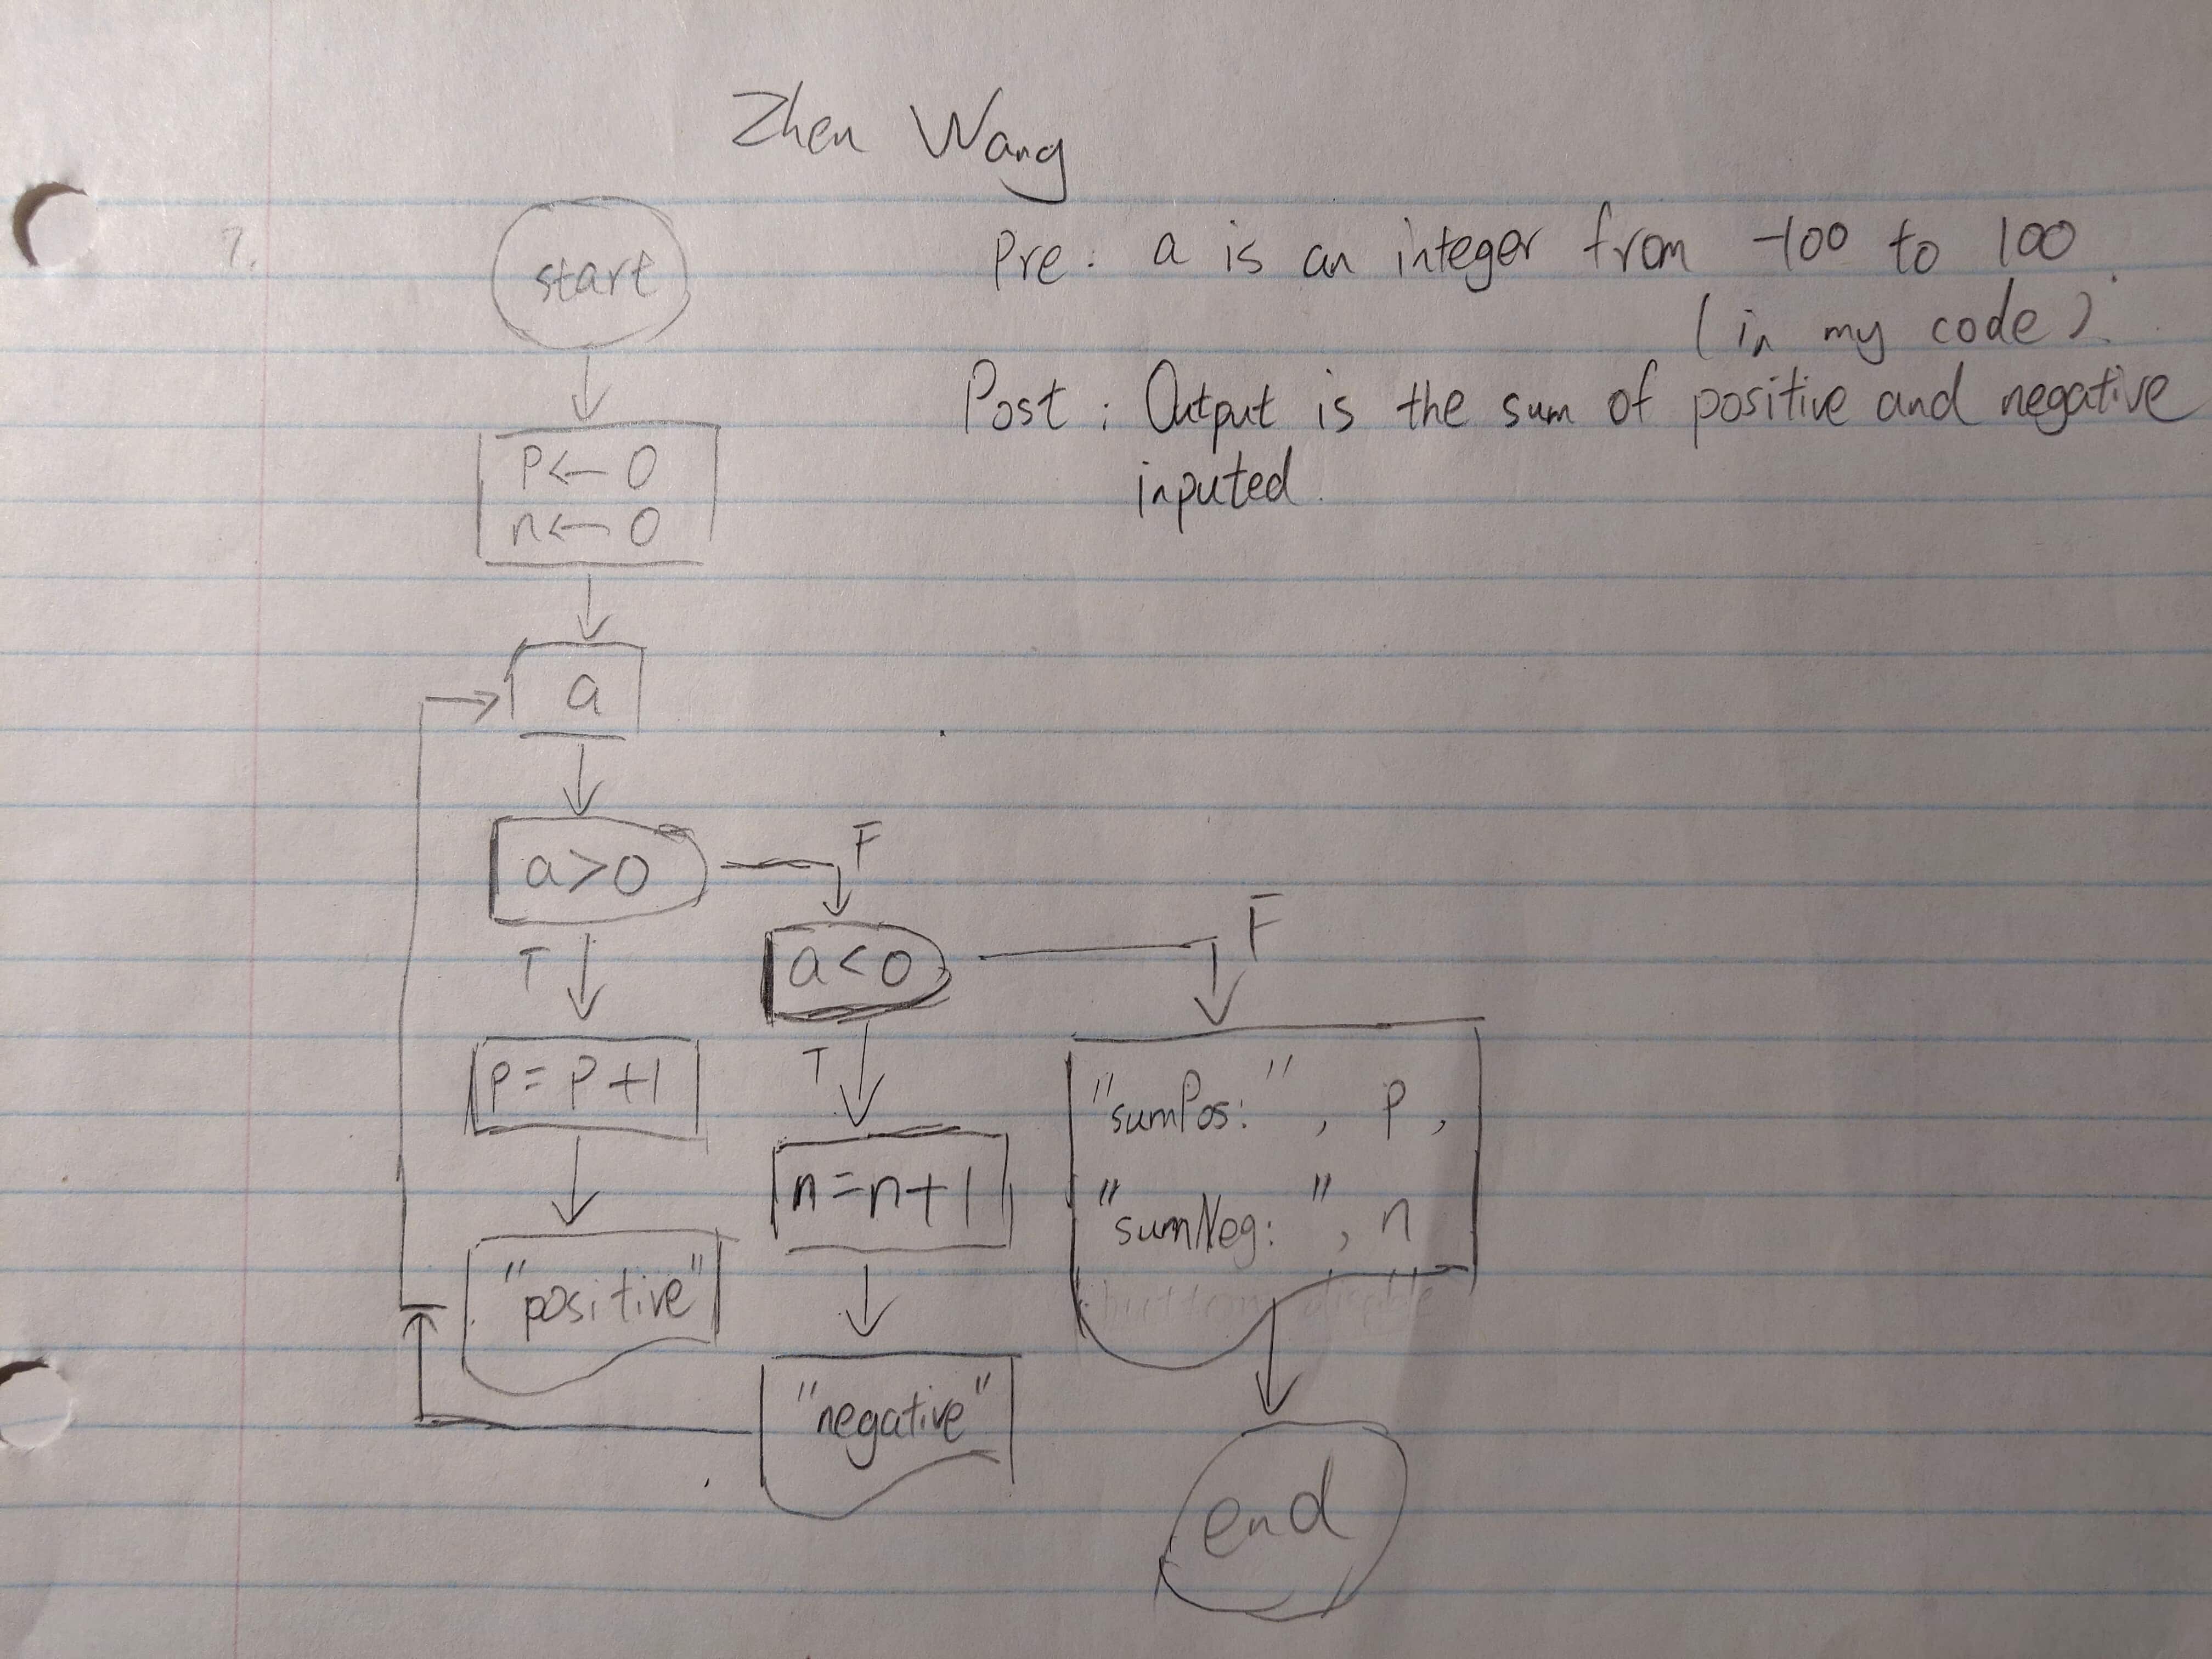 Zhen Wang
7.
Pre: a is an integer from -100 to 100.
(in my code)
Post: Output is the sum of positive and negative
inputed.
start
p← 0
n← 0
a
a>0
F
T
a<0
F
T
p= p+1
n=n+1
"positive"
"negative"
"sumPos: ", p,
"sumNeg: ", n
end